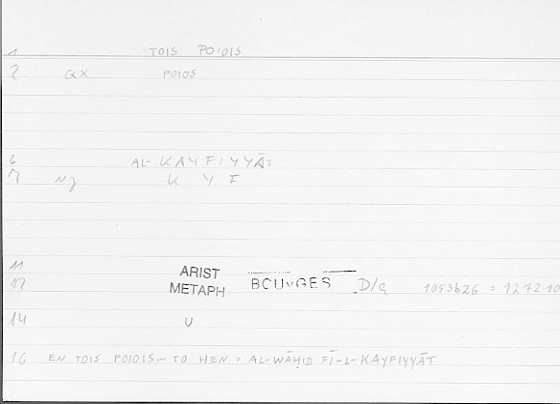 1 TOIS POIOIS
2 QX POIOS
6 AL-KAYFIYYĀT
7 Nj K Y F
11 ARIST
12 METAPH BOUYGES D/a 1053b26 = 1272.10
14 U
16 EN TOIS POIOIS... TO HEN = AL-WĀḤID FĪ-L-KAYFIYYĀT